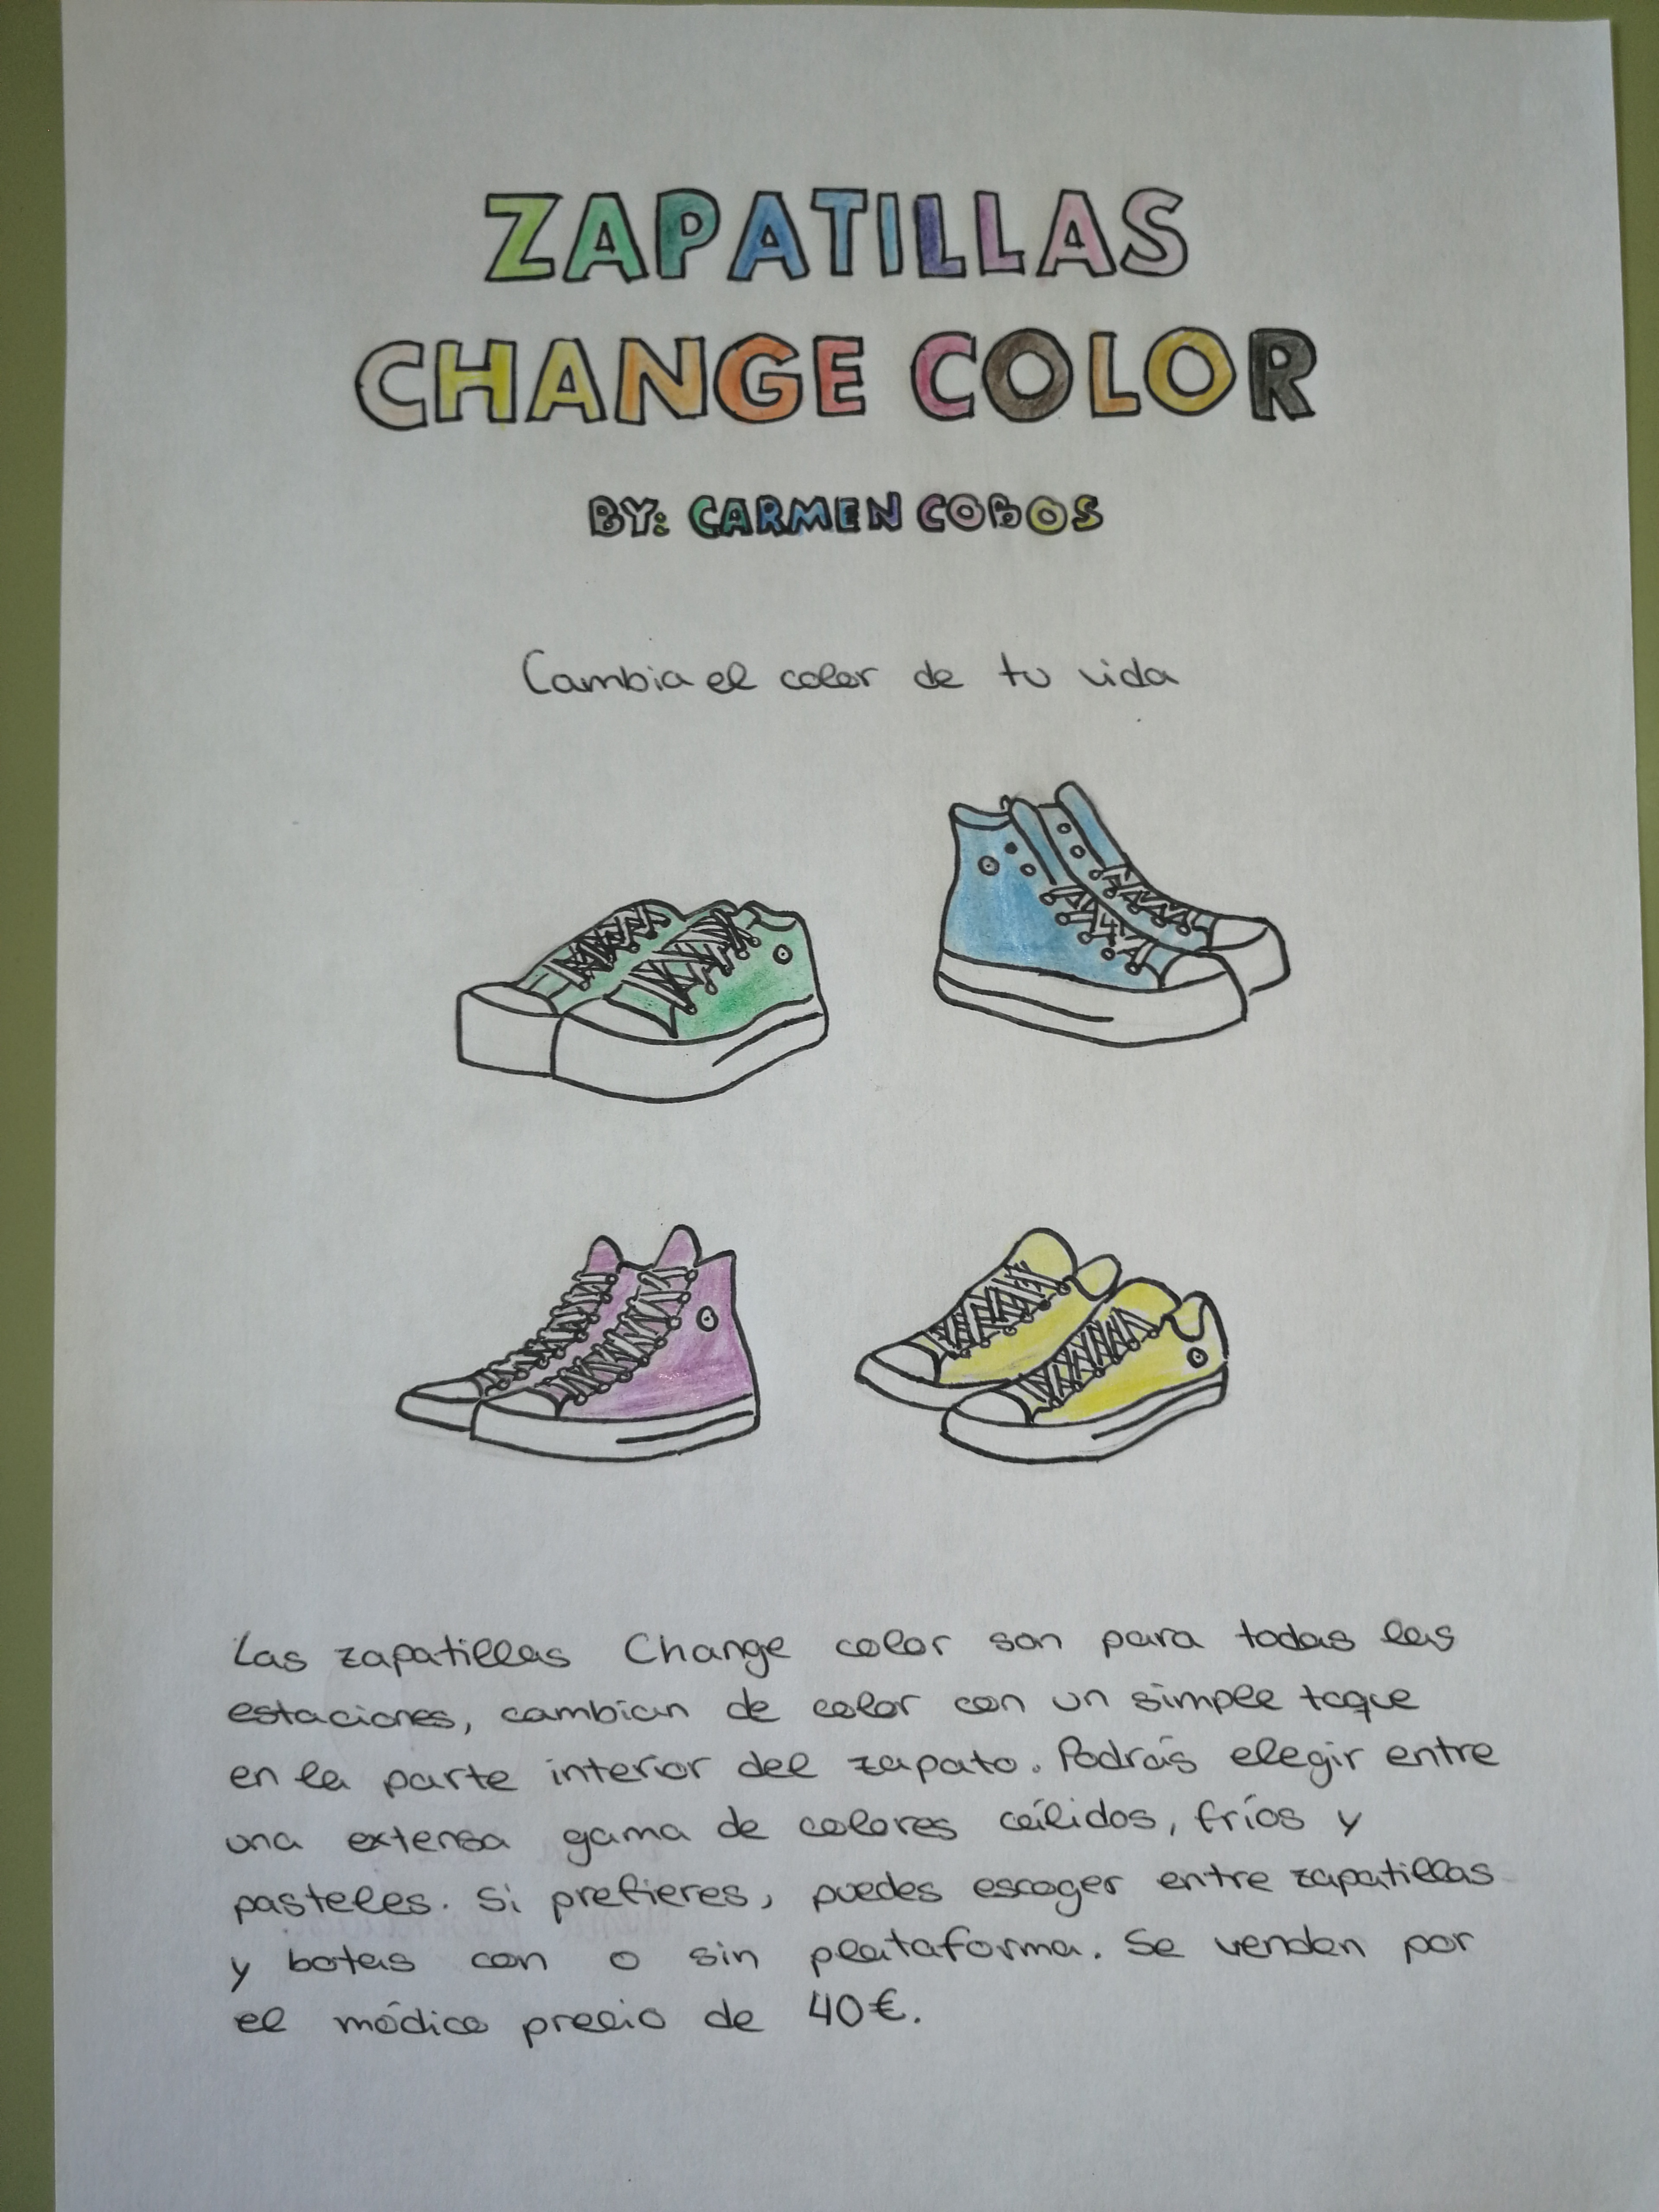 ZAPATILLAS
CHANGE COLOR
BY: CARMEN COBOS
Cambia el color de tu vida
Las zapatillas Change color son para todas las
estaciones, cambian de color con un simple toque
en la parte interior del zapato. Podrás elegir entre
una extensa gama de colores cálidos, fríos y
pasteles. Si prefieres, puedes escoger entre zapatillas
y botas con o sin plataforma. Se venden por
el módico precio de 40€.